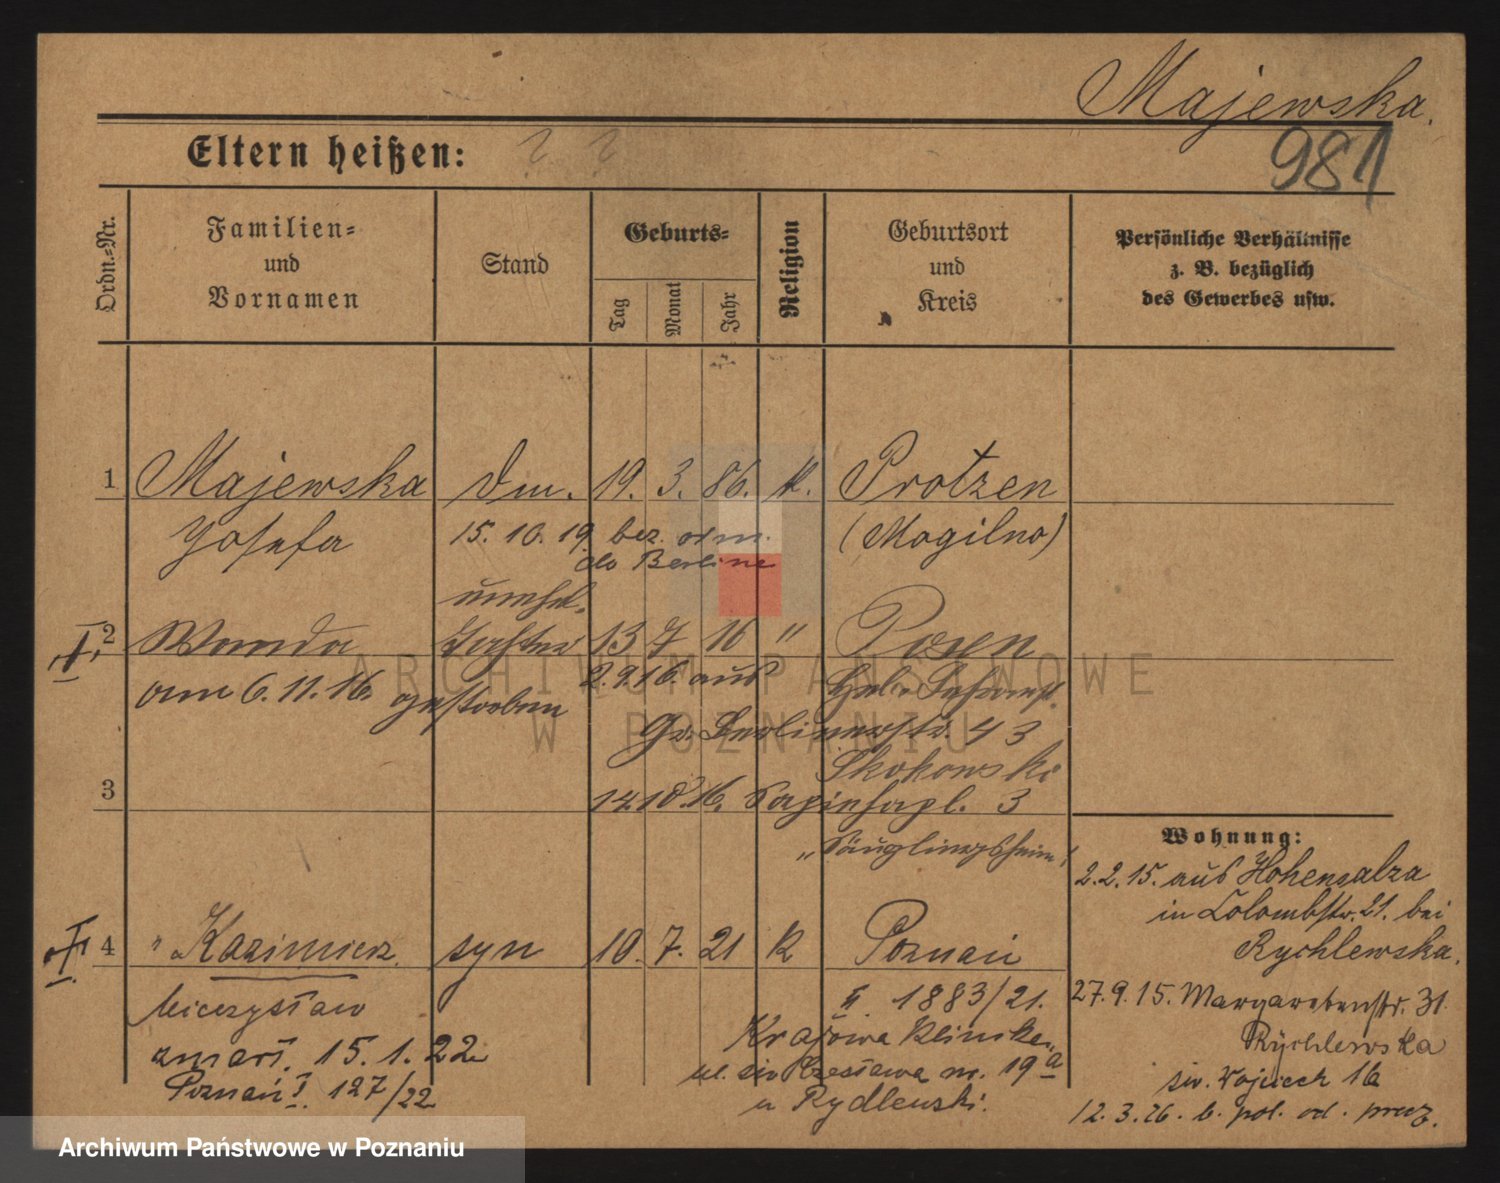 Majewska.
981
Eltern heißen: ? ?
Ordn.-Nr.
Familien-
und
Vornamen
Stand
Geburts-
Tag
Monat
Jahr
Religion
Geburtsort
und
Kreis
Persönliche Verhältnisse
z. B. bezüglich
des Gewerbes usw.
1 Majewska 19. 3. 86. K. Protzen
Josefa 15. 10. 19. bez. odm. (Mogilno)
do Berlina
unehel.
2 Wanda Tochter 13 7 16 " Posen
am 6. 11. 16. gestorben 2. 9. 16. aus
Gr. Berlinerstr. 43
Skokowski
3 14. 10. 16. Sapiehapl. 3
„Säuglingsheim"
Wohnung:
2. 2. 15. aus Hohensalza
in Colombstr. 21. bei
Rychlewska.
4 " Kazimierz syn 10. 7. 21 K Poznań
Mieczysław II 1883/21.
27. 9. 15. Margaretenstr. 31.
Rychlewska
zmarł. 15. 1. 22 Krajowa Klinika
Poznań I. 127/22 ul. św Czesława nr. 19a
u Rydlewski.
św. Wojciech 16
12. 3. 26. b. pol. od. prez.
ARCHIWUM PAŃSTWOWE
W POZNANIU
Archiwum Państwowe w Poznaniu